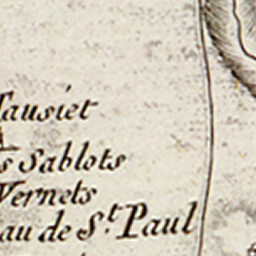 Tausiet
s Sablots
Vernets
au de S.t Paul